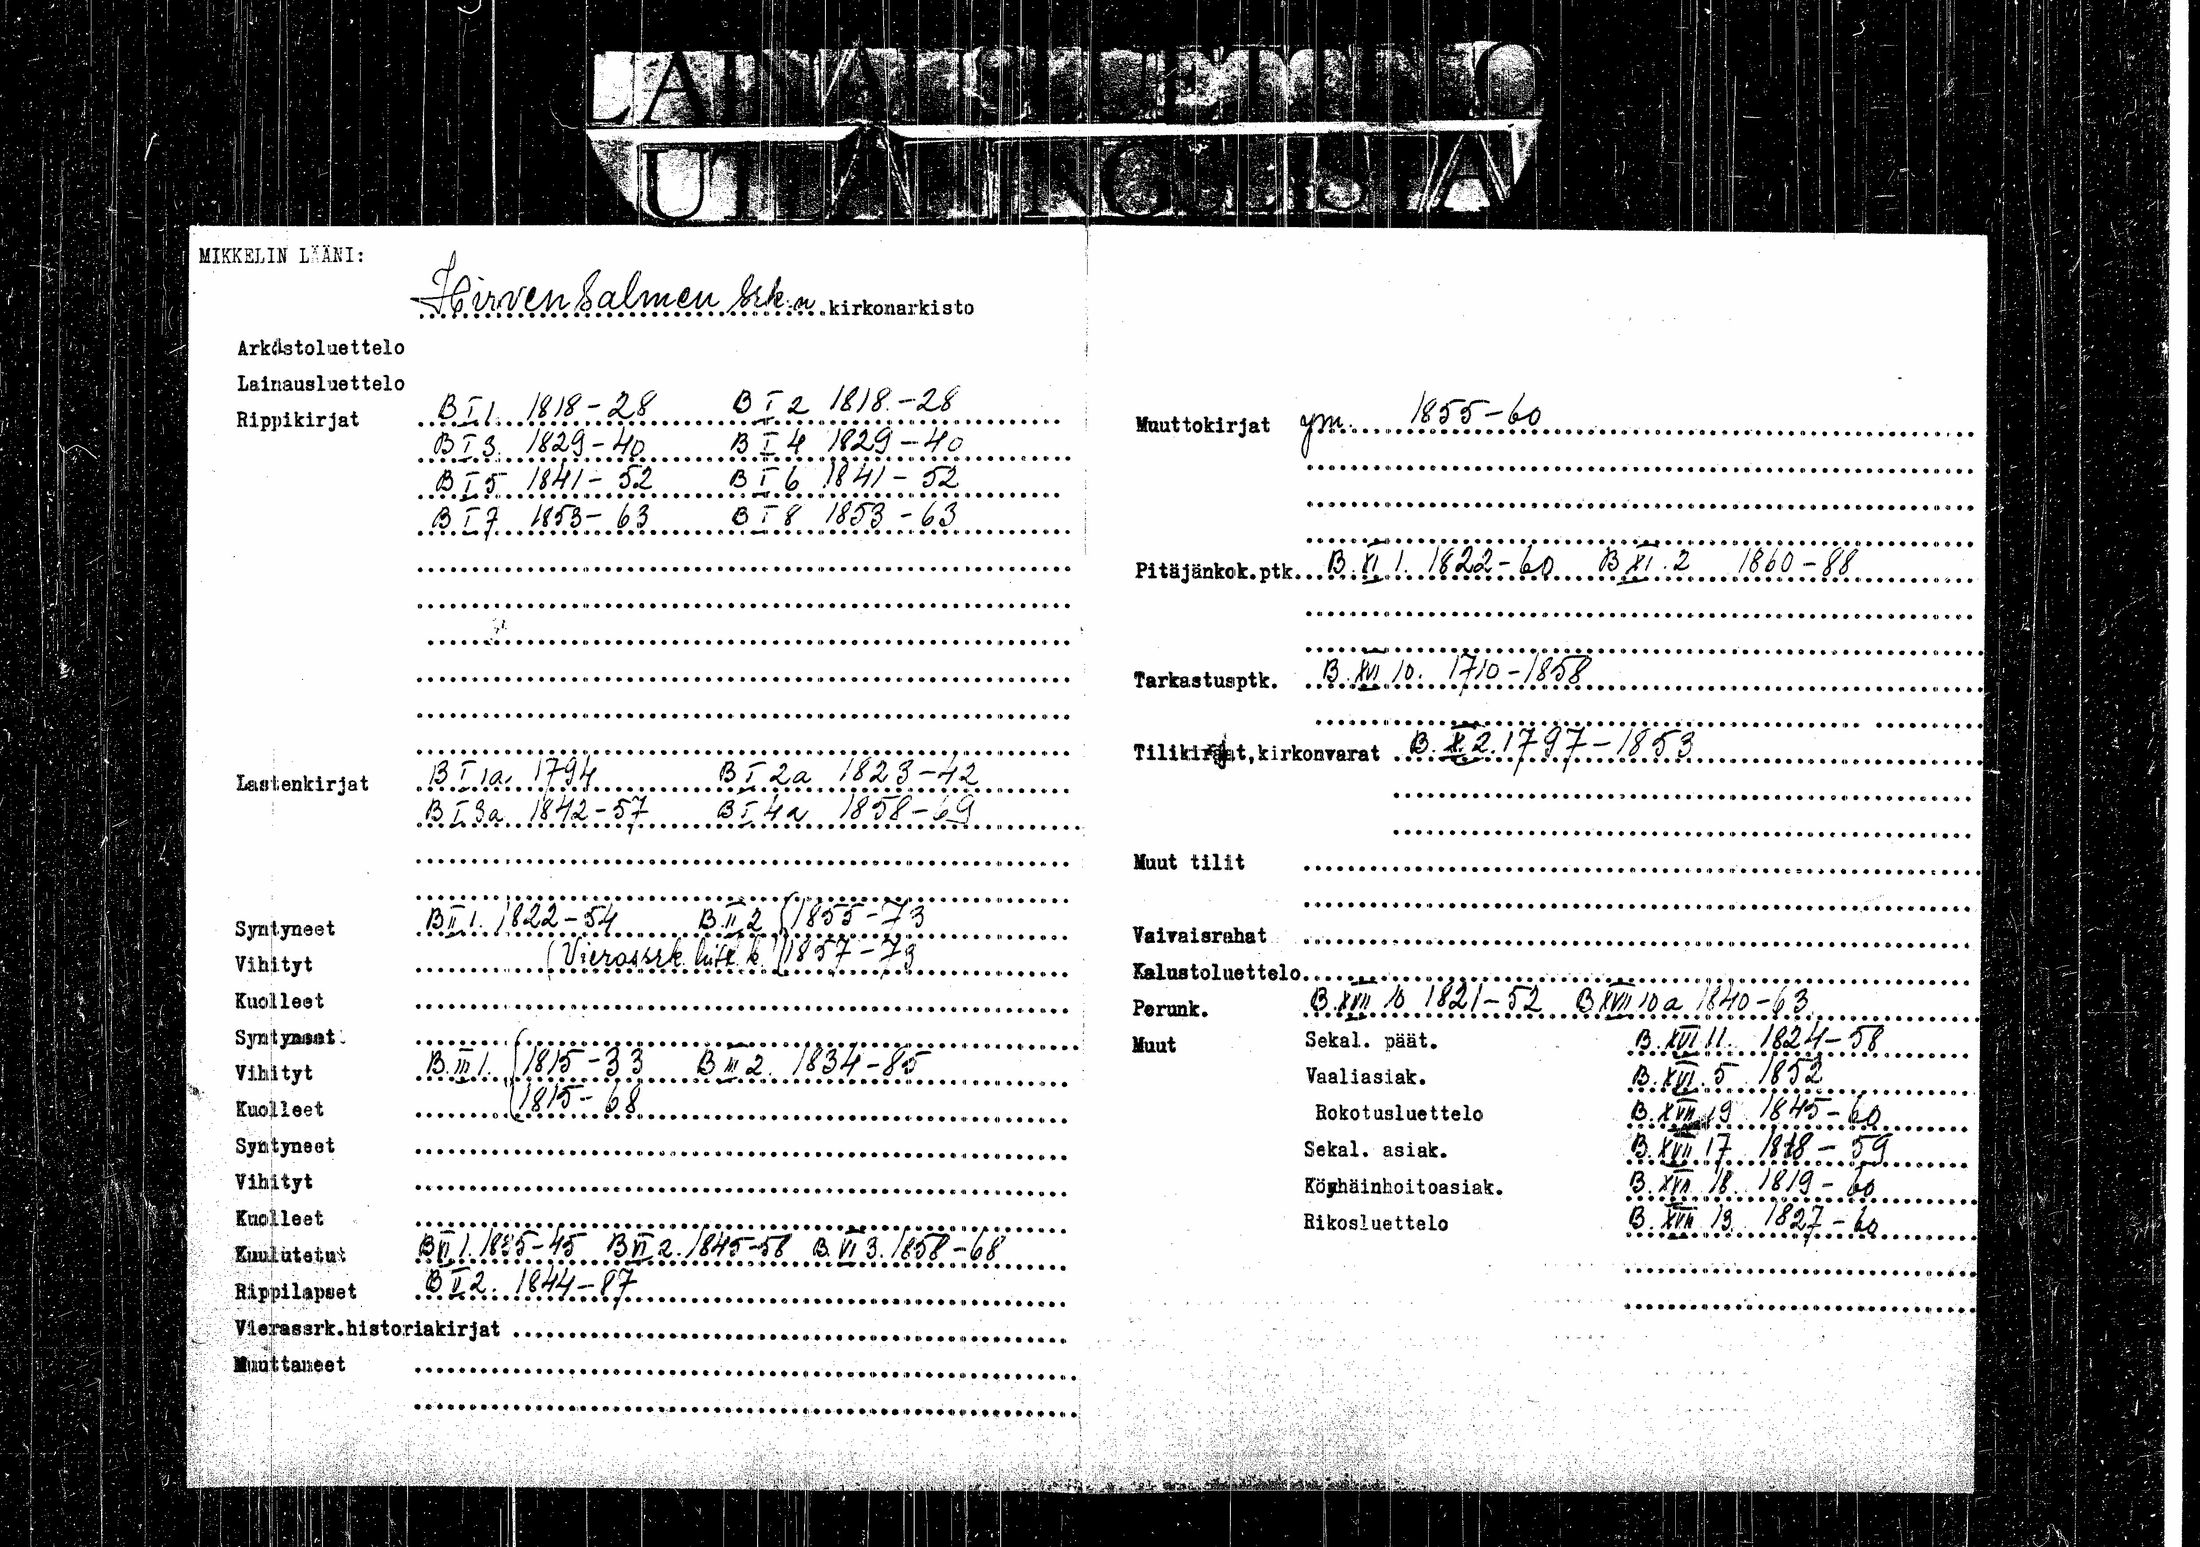 LAINAUSLUETTELO
UTLÅNINGSLISTA
MIKKELIN LÄÄNI:
Hirvensalmen srk:n kirkonarkisto
Arkistoluettelo
Lainausluettelo
Rippikirjat B I 1. 1818-28 B I 2 1818-28
B I 3. 1829-40 B I 4 1829-40
B I 5 1841-52 B I 6 1841-52
B I 7 1853-63 B I 8 1853-63
Lastenkirjat B I 1a. 1794 B I 2a 1823-42
B I 3a 1842-57 B I 4a 1858-69
Syntyneet B II 1. 1822-54 B II 2 (1855-73
Vihityt (Vierassrk. 1857-73
Kuolleet
Syntyneet
Vihityt B. III 1. (1815-33 B III 2. 1834-85
Kuolleet (1815-68
Syntyneet
Vihityt
Kuolleet
Kuulutetut B VI 1. 1835-45 B VI 2. 1845-58 B. VI 3. 1858-68
Rippilapset B V 2. 1844-87
Vierassrk.historiakirjat
Muuttaneet
Muuttokirjat ym. 1855-60
Pitäjänkok.ptk. B. XI 1. 1822-60 B XI. 2 1860-88
Tarkastusptk. B. XVI 10. 1710-1858
Tilikirjat, kirkonvarat B. X. 2. 1797-1853
Muut tilit
Vaivaisrahat
Kalustoluettelo
Perunk. B. XVII 10 1821-52 B XVII 10a 1840-63
Muut Sekal. päät. B. XVI 11. 1824-58
Vaaliasiak. B. XVI. 5 1852
Rokotusluettelo B. XVII 19 1845-60
Sekal. asiak. B. XVII 17 1818-59
Köyhäinhoitoasiak. B. XVII 18. 1819-60
Rikosluettelo B. XVII 13. 1827-60